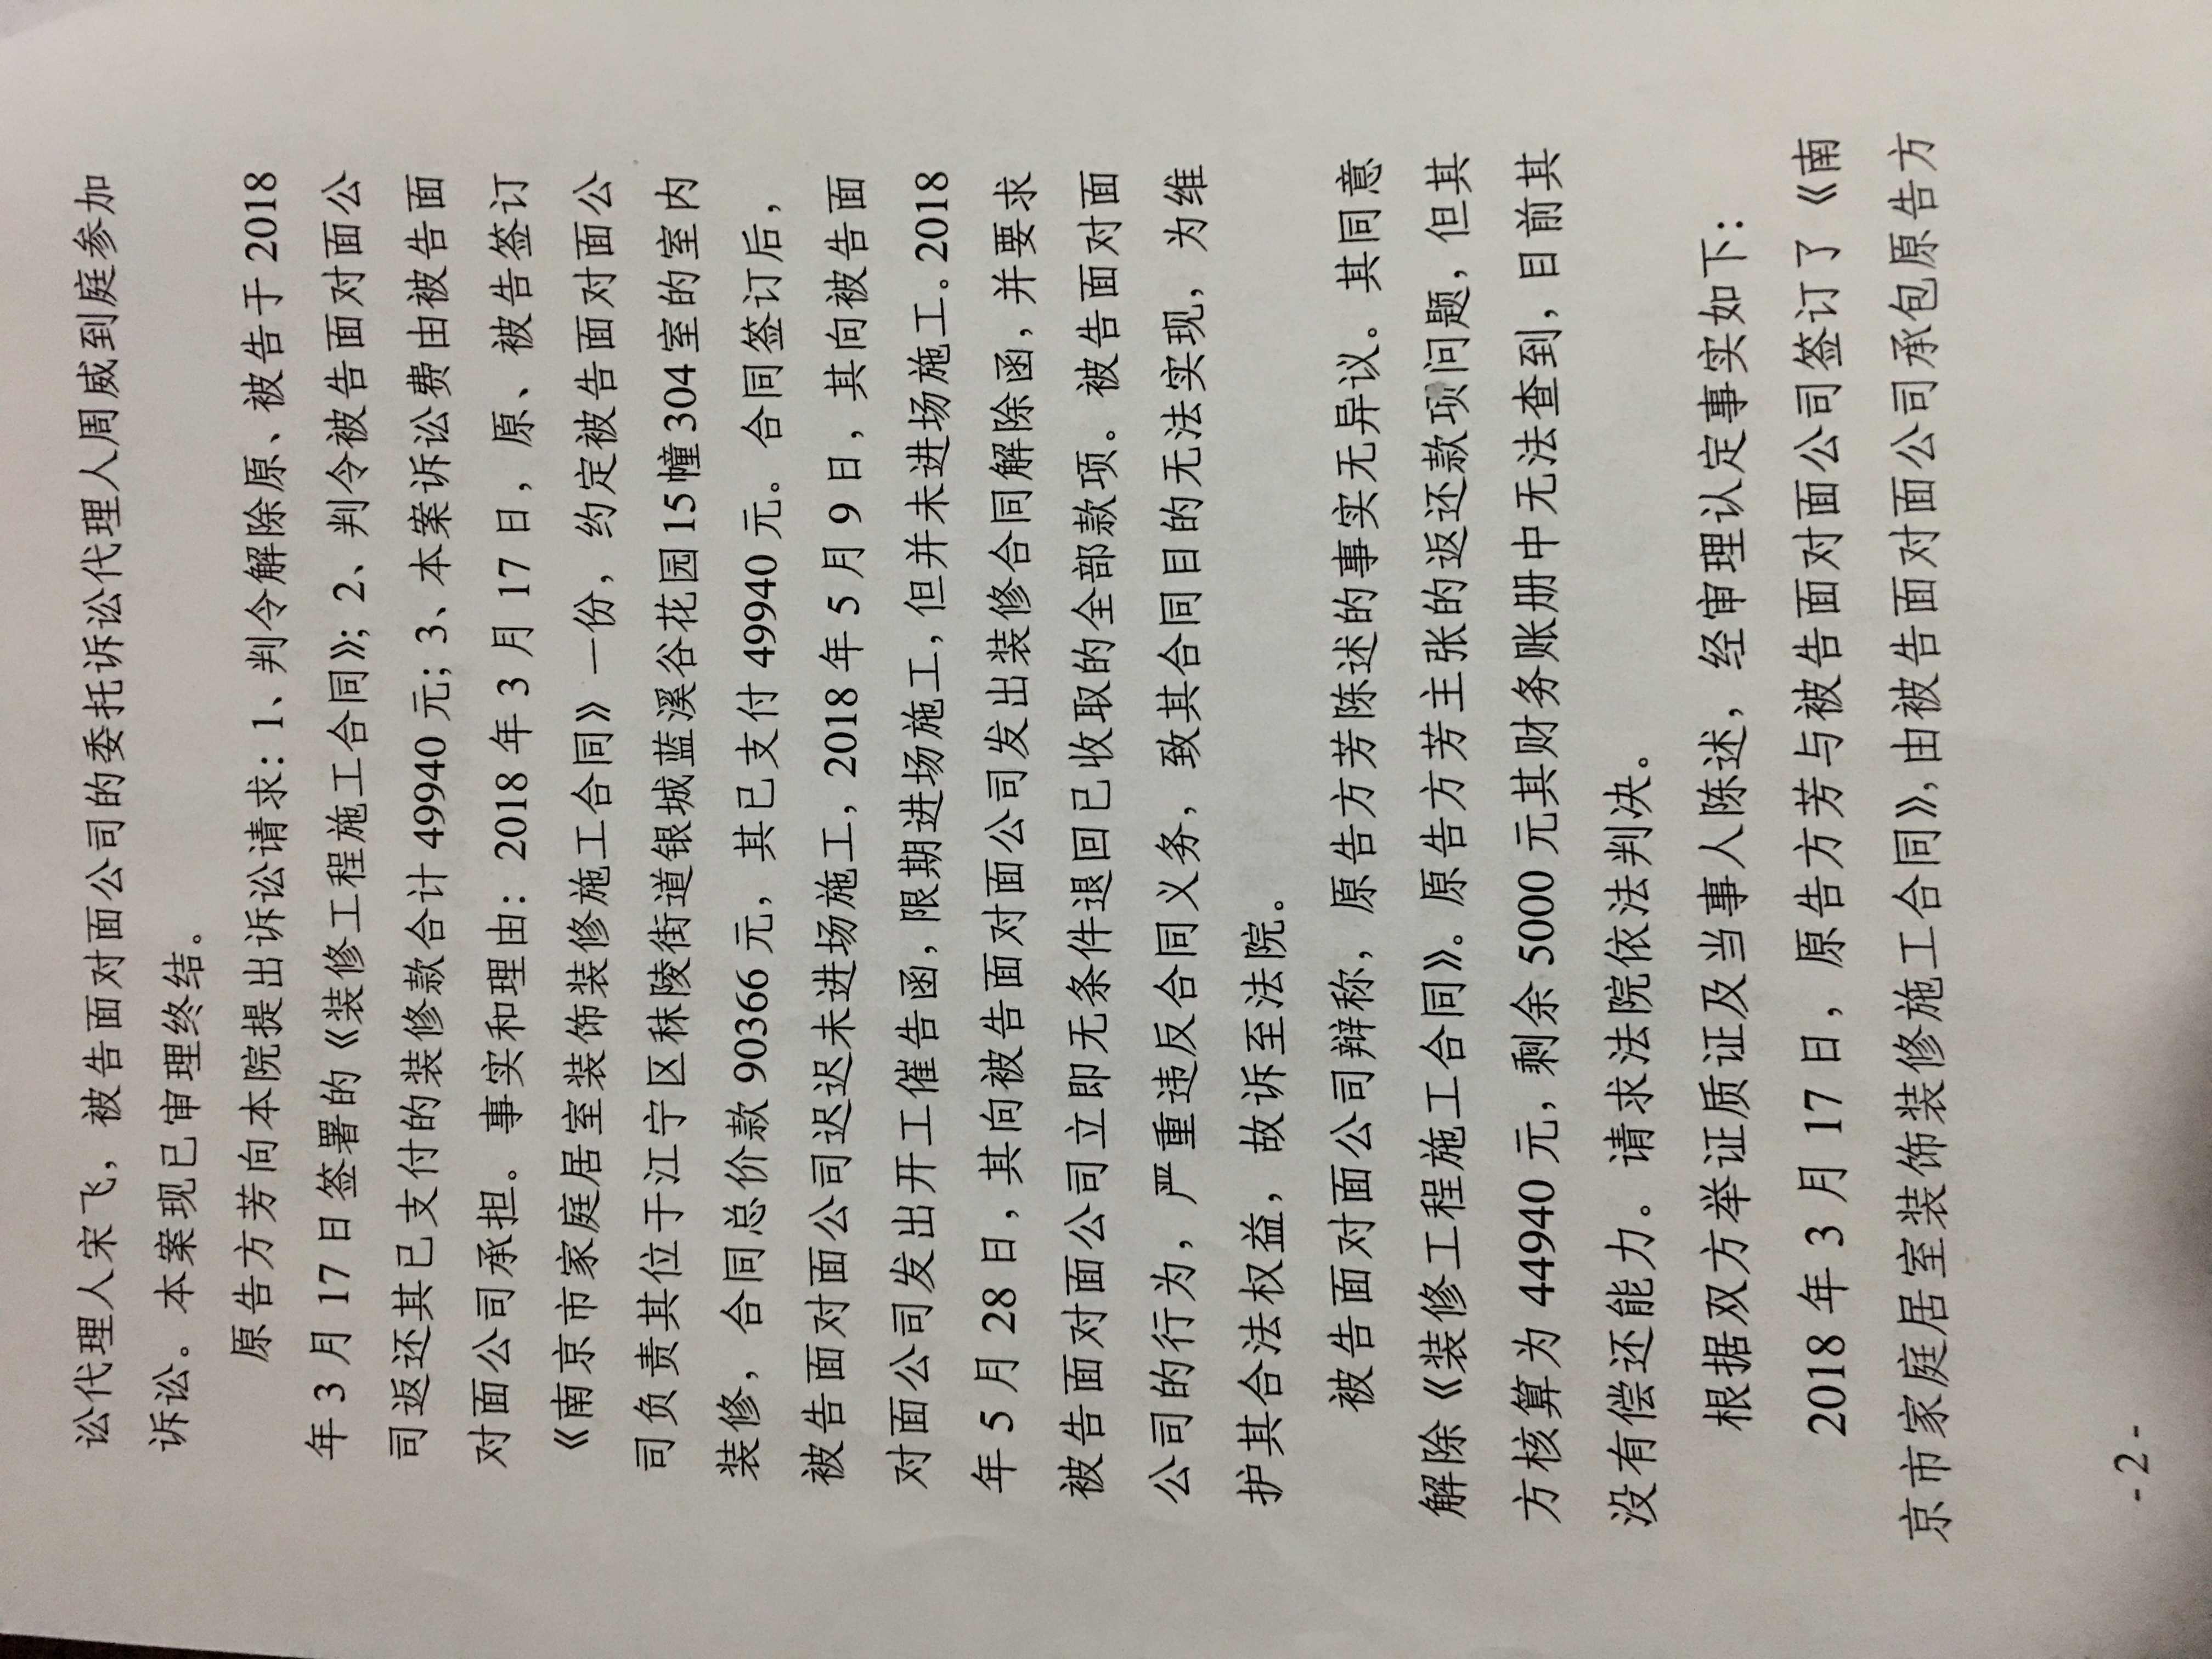 讼代理人宋飞，被告面对面公司的委托诉讼代理人周威到庭参加
诉讼。本案现已审理终结。
原告方芳向本院提出诉讼请求：1、判令解除原、被告于 2018
年 3 月 17 日签署的《装修工程施工合同》；2、判令被告面对面公
司返还其已支付的装修款合计 49940 元；3、本案诉讼费由被告面
对面公司承担。事实和理由：2018 年 3 月 17 日，原、被告签订
《南京市家庭居室装饰装修施工合同》一份，约定被告面对面公
司负责其位于江宁区秣陵街道银城蓝溪谷花园 15 幢 304 室的室内
装修，合同总价款 90366 元，其已支付 49940 元。合同签订后，
被告面对面公司迟迟未进场施工，2018 年 5 月 9 日，其向被告面
对面公司发出开工催告函，限期进场施工，但并未进场施工。2018
年 5 月 28 日，其向被告面对面公司发出装修合同解除函，并要求
被告面对面公司立即无条件退回已收取的全部款项。被告面对面
公司的行为，严重违反合同义务，致其合同目的无法实现，为维
护其合法权益，故诉至法院。
被告面对面公司辩称，原告方芳陈述的事实无异议。其同意
解除《装修工程施工合同》。原告方芳主张的返还款项问题，但其
方核算为 44940 元，剩余 5000 元其财务账册中无法查到，目前其
没有偿还能力。请求法院依法判决。
根据双方举证质证及当事人陈述，经审理认定事实如下：
2018 年 3 月 17 日，原告方芳与被告面对面公司签订了《南
京市家庭居室装饰装修施工合同》，由被告面对面公司承包原告方
- 2 -